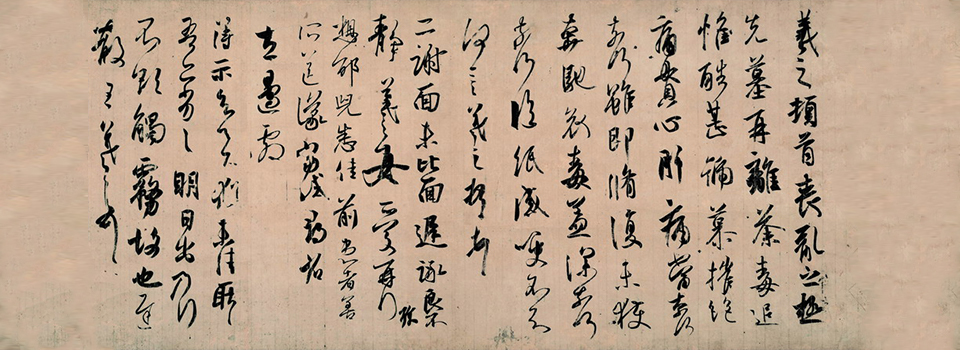 羲之頓首喪亂之極
先墓再離荼毒追
惟酷甚號慕摧絕
痛貫心肝痛當奈何
奈何雖即脩復未獲
奔馳哀毒益深奈何
奈何臨紙感哽不知
何言羲之頓首頓首
二謝面未比面遲詠良
靜羲之女愛再拜
想邵兒悉佳前患者善
所送議當試尋省
左邊劇
得示知足下猶未佳耿耿
吾亦劣劣明日出乃行
不欲觸霧故也遲
散王羲之頓首